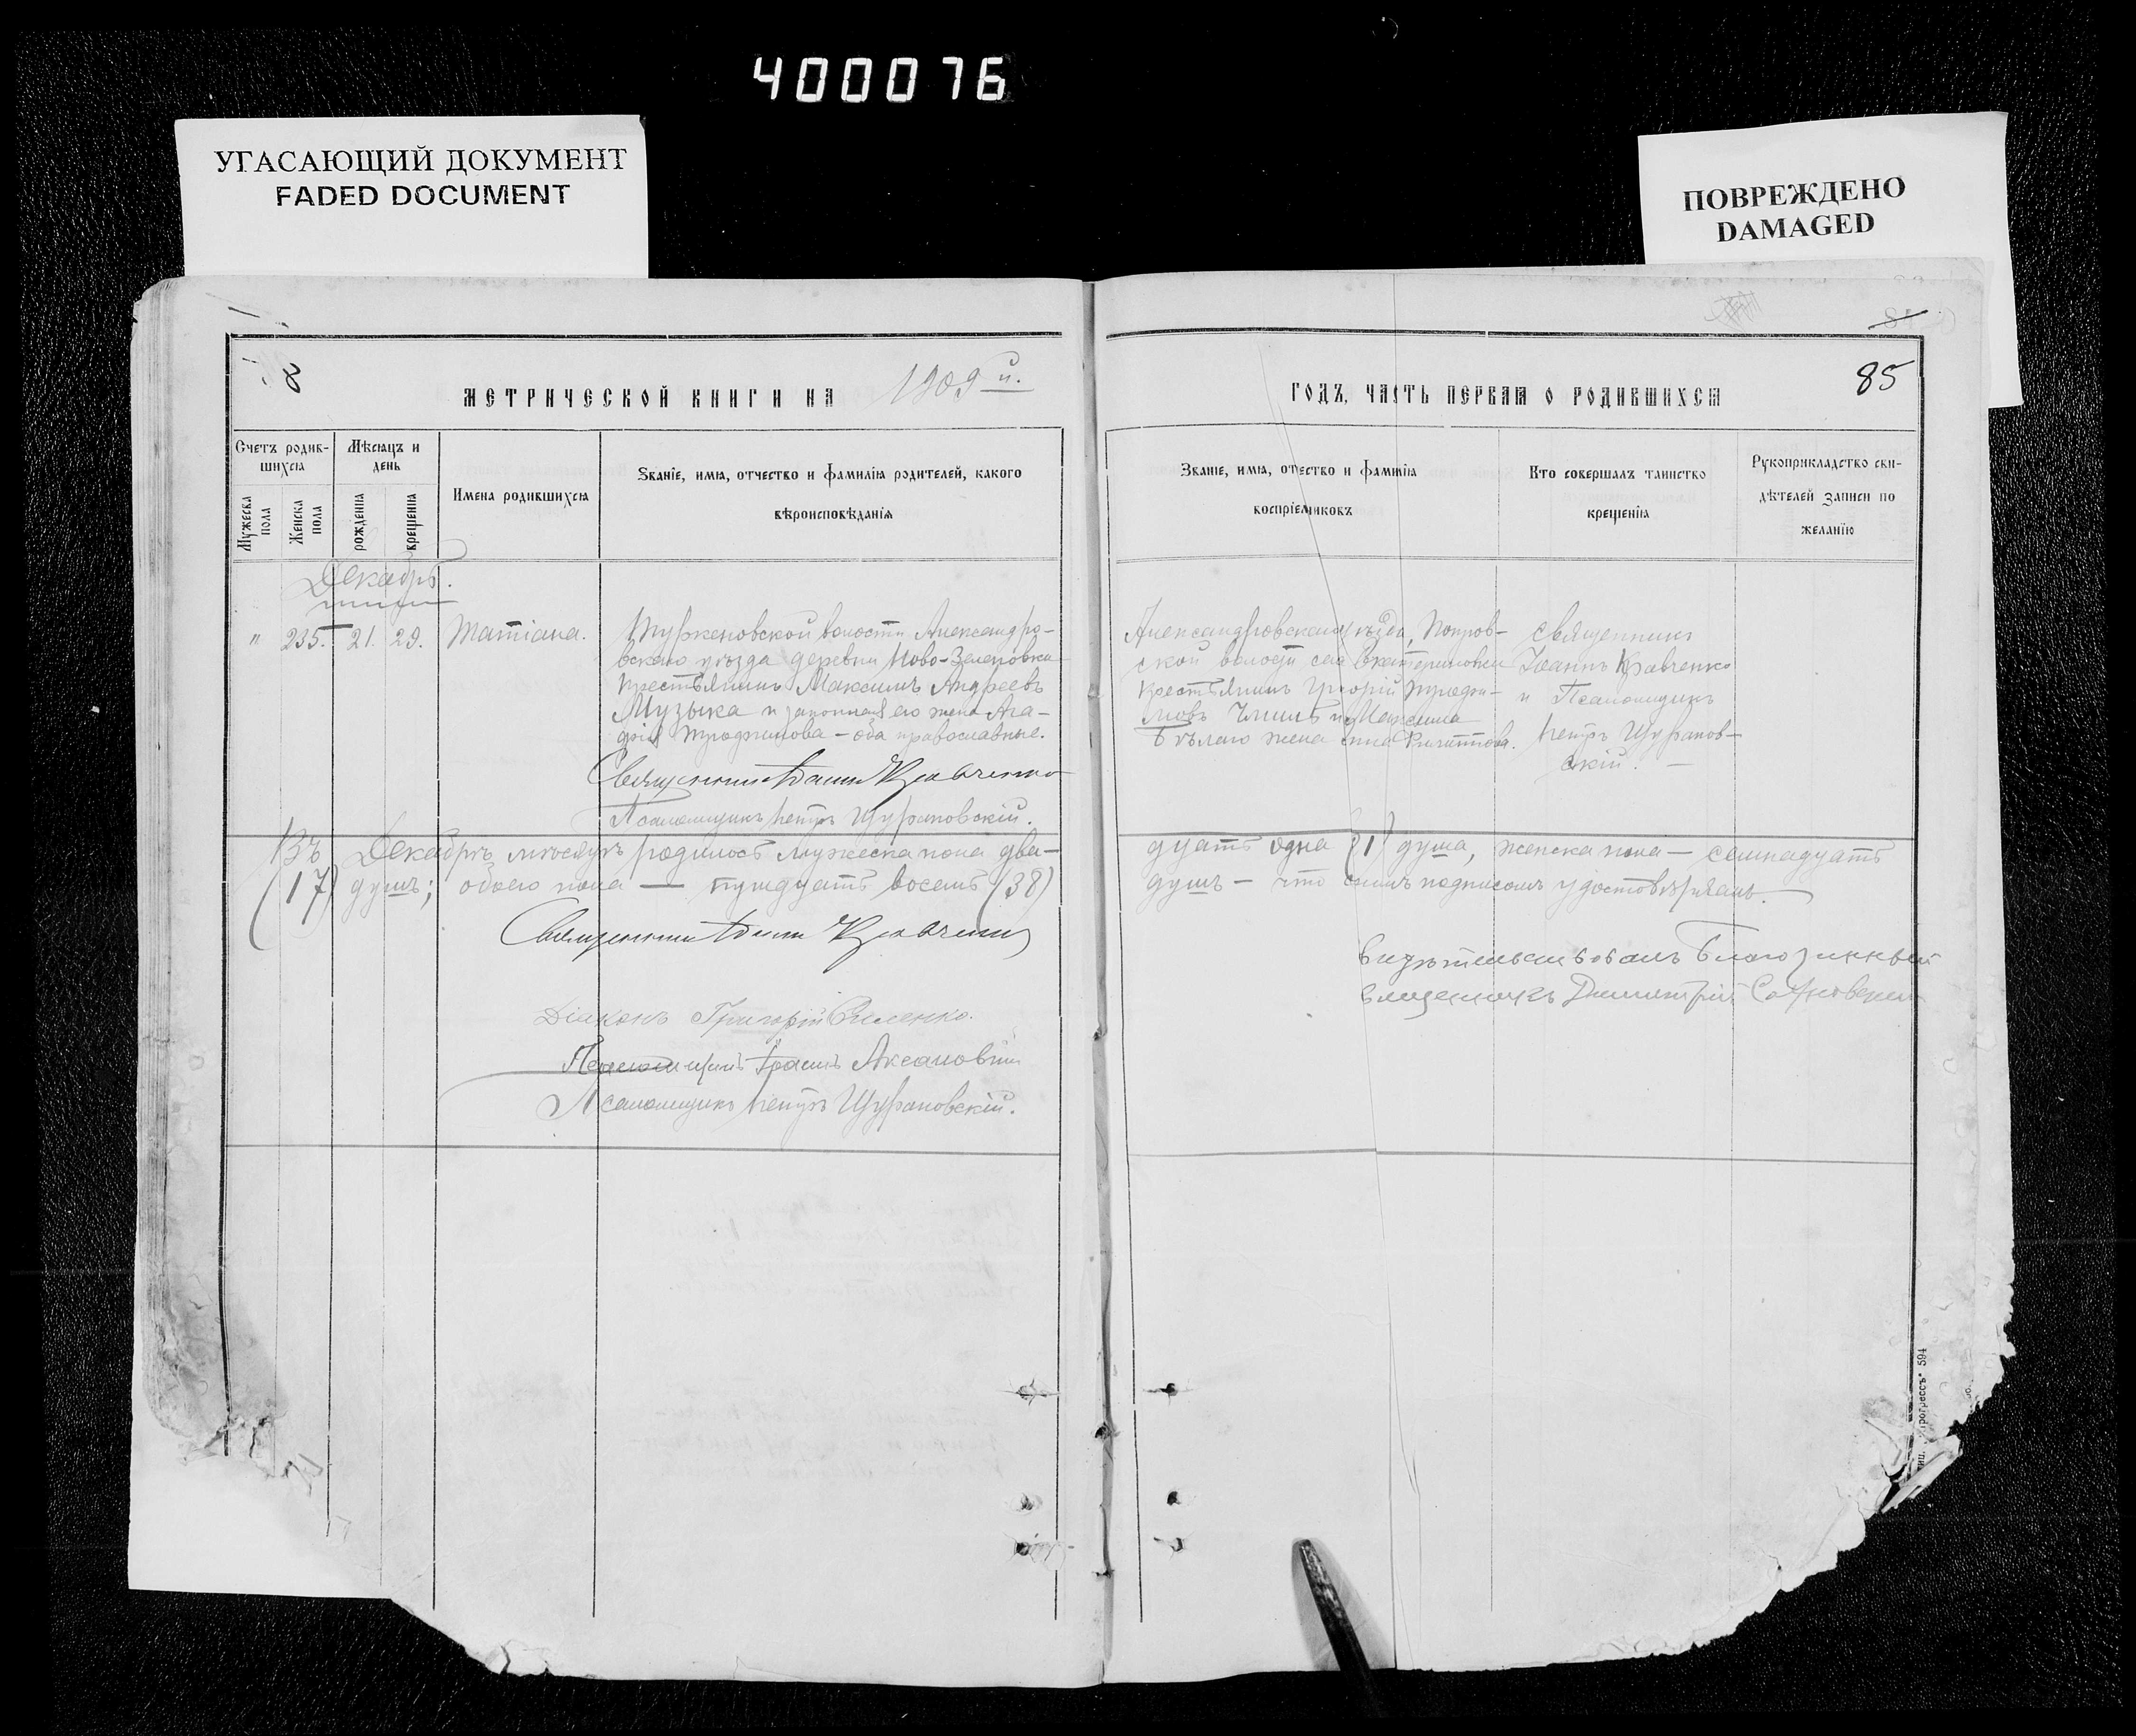 400076
УГАСАЮЩИЙ ДОКУМЕНТ
FADED DOCUMENT
ПОВРЕЖДЕНО
DAMAGED
8
МЕТРИЧЕСКОЙ КНИГИ НА 1909 й.
ГОДЪ, ЧАСТЬ ПЕРВАЯ О РОДИВШИХСЯ
85
Счетъ родив-
шихся
Мужеска пола
Женска пола
Мѣсяцъ и
день
рожденія
крещенія
Имена родившихся
Званіе, имя, отчество и фамилія родителей, какого
вѣроисповѣданія
Званіе, имя, отчество и фамилія
воспріемниковъ
Кто совершалъ таинство
крещенія
Рукоприкладство сви-
дѣтелей записи по
желанію
Декабрь.
" 235. 21. 29. Татіана.
Туркеновской волости Александро-
вскаго уѣзда деревни Ново-Зеленовка
крестьянинъ Максимъ Андреевъ
Музыка и законная его жена Ага-
фія Трофимова — оба православные.
Священникъ Іоаннъ Кравченко
Псаломщикъ Петръ Щурановскій.
Александровскаго уѣзда, Покров-
ской волости села Екатериновки
крестьянинъ Григорій Трофи-
мовъ и Максима
Бѣлаго жена
Священникъ
Іоаннъ Кравченко
и Псаломщикъ
Петръ Щуранов-
скій. —
Въ Декабрѣ мѣсяцѣ родилось мужеска пола два-
дцать одна (21) душа, женска пола — семнадцать
(17) душъ; обоего пола — тридцать восемь (38)
душъ — что симъ подписомъ удостовѣряемъ.
Священникъ Іоаннъ Кравченко
Діаконъ Григорій
Псаломщикъ
Псаломщикъ Петръ Щурановскій.
Свидѣтельствовалъ Благочинный
Священникъ Димитрій
594